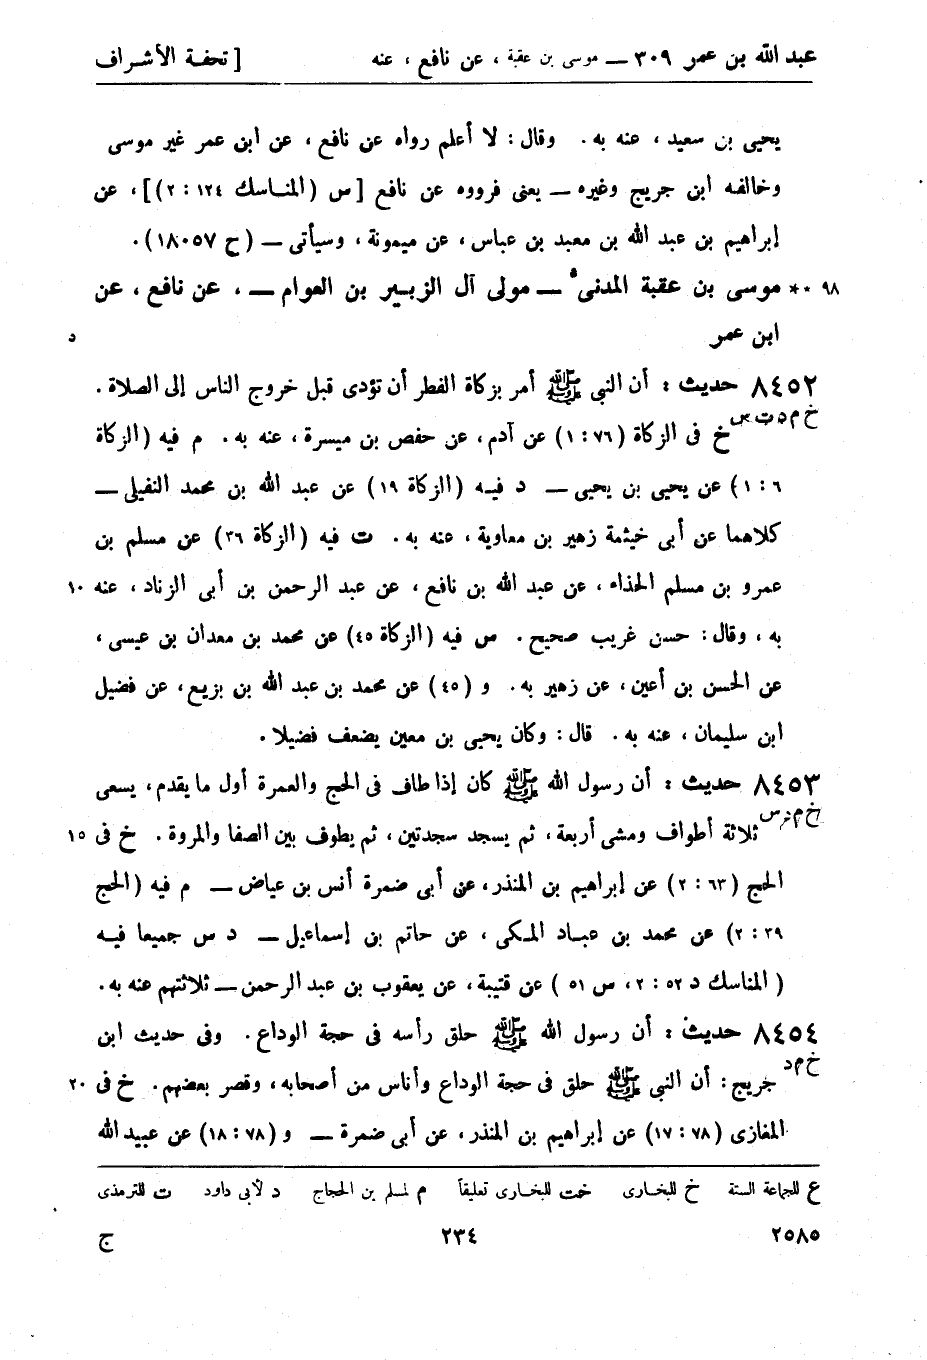 عبد الله بن عمر ٣٠٩ — موسى بن عقبة ، عن نافع ، عنه [ تحفة الأشراف
يحيى بن سعيد ، عنه به . وقال : لا أعلم رواه عن نافع ، عن ابن عمر غير موسى
وخالفه ابن جريج وغيره — يعنى فرووه عن نافع [ س ( المناسك ١٢٤ : ٢ ) ] ، عن
إبراهيم بن عبد الله بن معبد بن عباس ، عن ميمونة ، وسيأتى — ( ح ١٨٠٥٧ ) .
٩٨ ** موسى بن عقبة المدنى — مولى آل الزبير بن العوام — ، عن نافع ، عن
ابن عمر د
٨٤٥٢ حديث : أن النبي ﷺ أمر بزكاة الفطر أن تؤدى قبل خروج الناس إلى الصلاة .
خ م د ت س خ فى الزكاة ( ٧٦ : ١ ) عن آدم ، عن حفص بن ميسرة ، عنه به . م فيه ( الزكاة
٦ : ١ ) عن يحيى بن يحيى — د فيه ( الزكاة ١٩ ) عن عبد الله بن محمد النفيلى —
كلاهما عن أبى خيثمة زهير بن معاوية ، عنه به . ت فيه ( الزكاة ٣٦ ) عن مسلم بن
عمرو بن مسلم الحذاء ، عن عبد الله بن نافع ، عن عبد الرحمن بن أبى الزناد ، عنه ١٠
به ، وقال : حسن غريب صحيح . س فيه ( الزكاة ٤٥ ) عن محمد بن معدان بن عيسى ،
عن الحسن بن أعين ، عن زهير به . و ( ٤٥ ) عن محمد بن عبد الله بن بزيع ، عن فضيل
ابن سليمان ، عنه به . قال : وكان يحيى بن معين يضعف فضيلا .
٨٤٥٣ حديث : أن رسول الله ﷺ كان إذا طاف فى الحج والعمرة أول ما يقدم ، يسعى
خ م د س ثلاثة أطواف ومشى أربعة ، ثم يسجد سجدتين ، ثم يطوف بين الصفا والمروة . خ فى ١٥
الحج ( ٦٣ : ٢ ) عن إبراهيم بن المنذر ، عن أبى ضمرة أنس بن عياض — م فيه ( الحج
٣٩ : ٢ ) عن محمد بن عباد المكى ، عن حاتم بن إسماعيل — د س جميعا فيه
( المناسك د ٥٢ : ٢ ، س ٥١ ) عن قتيبة ، عن يعقوب بن عبد الرحمن — ثلاثتهم عنه به .
٨٤٥٤ حديث : أن رسول الله ﷺ حلق رأسه فى حجة الوداع . وفى حديث ابن
خ م د جريج : أن النبي ﷺ حلق فى حجة الوداع وأناس من أصحابه ، وقصر بعضهم . خ فى ٢٠
المغازى ( ٧٨ : ١٧ ) عن إبراهيم بن المنذر ، عن أبى ضمرة — و ( ٧٨ : ١٨ ) عن عبيد الله
ع للجماعة الستة خ للبخارى خت للبخارى تعليقاً م لمسلم بن الحجاج د لأبى داود ت للترمذى
٢٥٨٥ ٢٣٤ ج